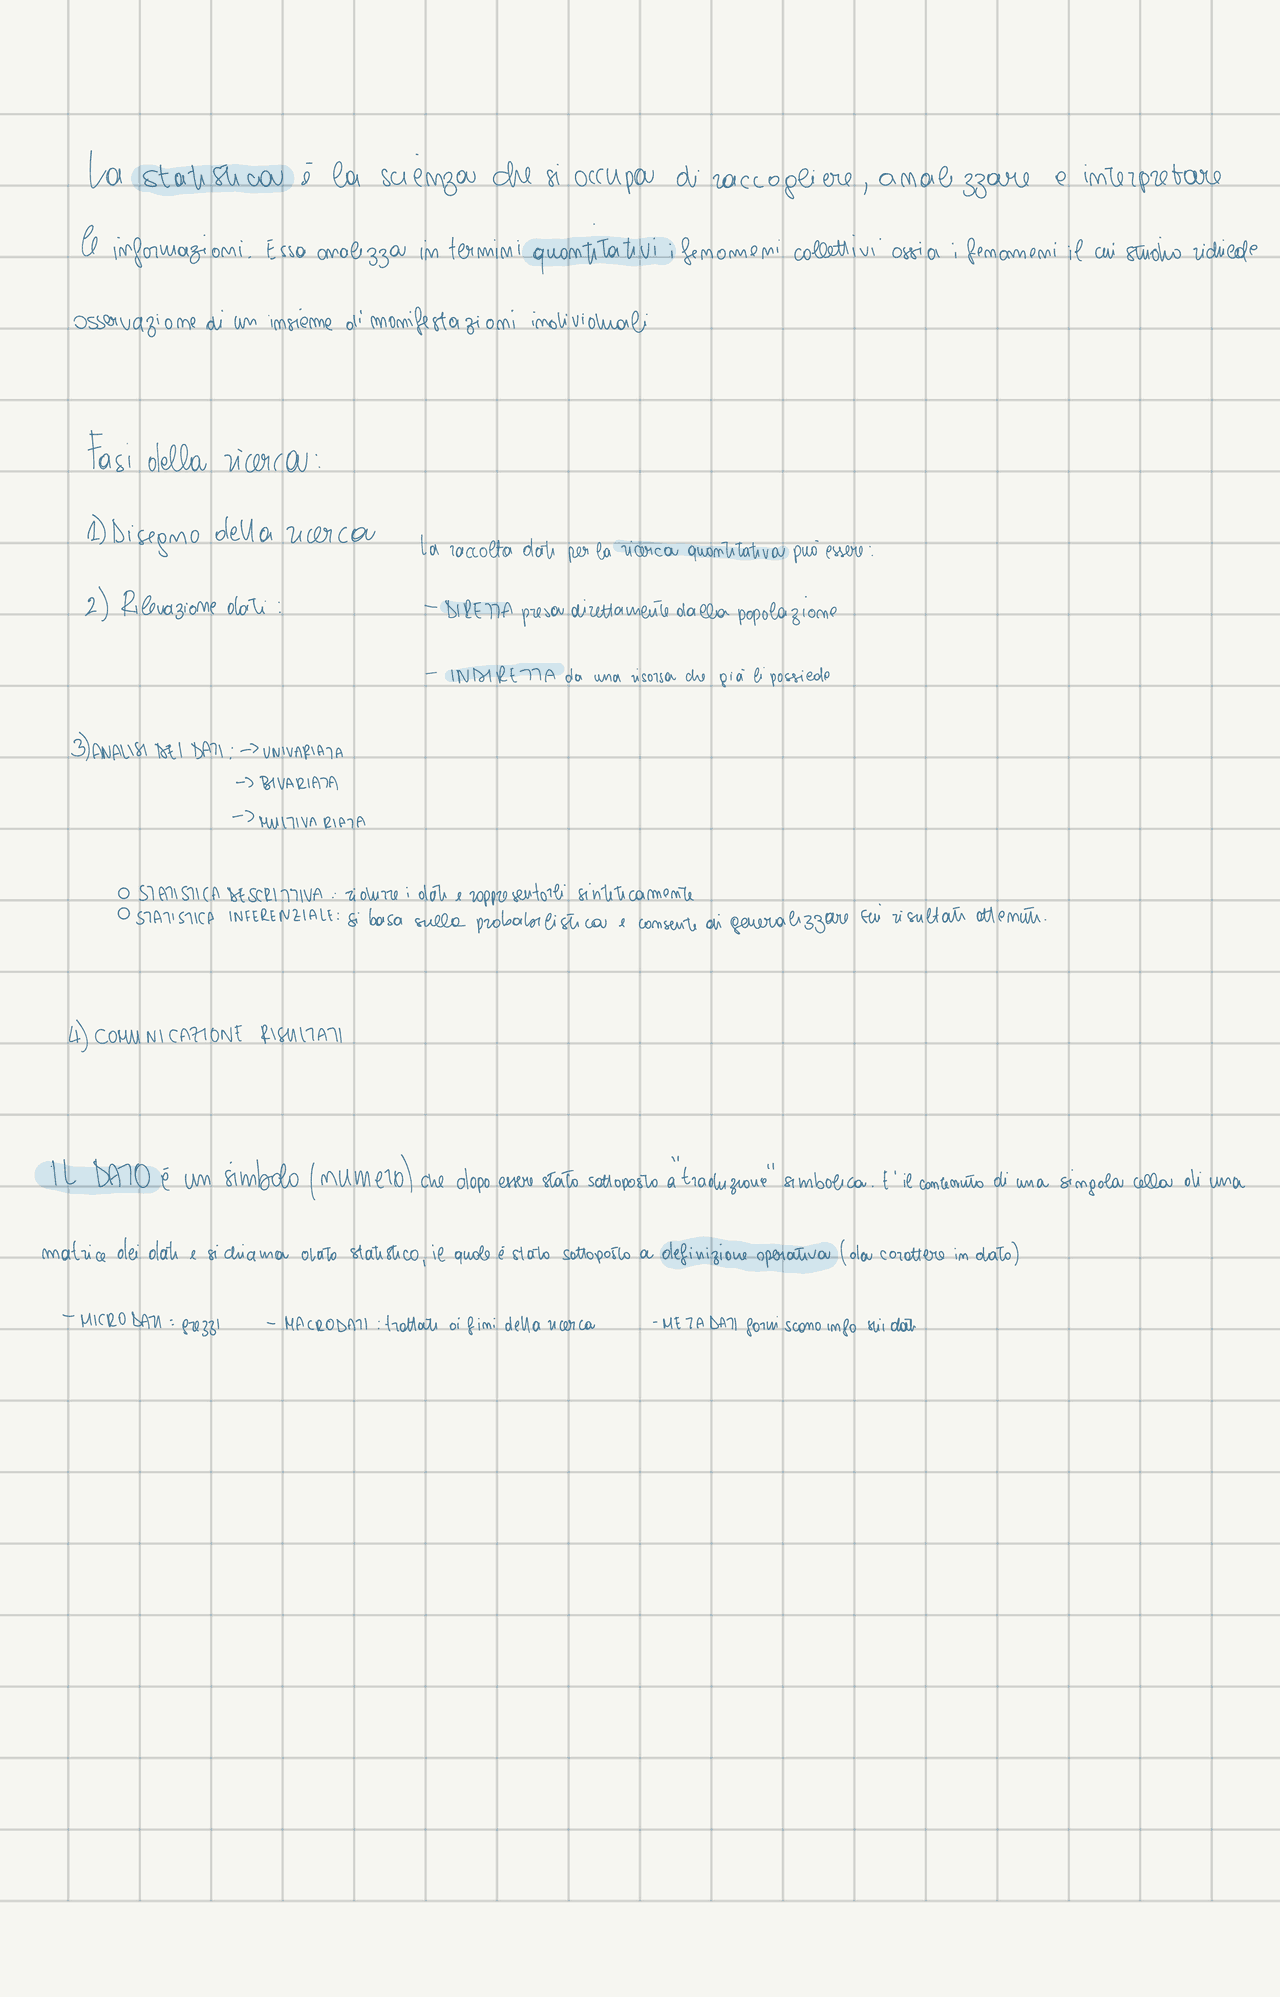 La statistica è la scienza che si occupa di raccogliere, analizzare e interpretare
le informazioni. Essa analizza in termini quantitativi i fenomeni collettivi ossia i fenomeni il cui studio richiede
osservazione di un insieme di manifestazioni individuali
Fasi della ricerca:
1) Disegno della ricerca
La raccolta dati per la ricerca quantitativa può essere:
2) Rilevazione dati:
- DIRETTA presa direttamente dalla popolazione
- INDIRETTA da una risorsa che già li possiede
3) ANALISI DEI DATI: -> UNIVARIATA
-> BIVARIATA
-> MULTIVARIATA
○ STATISTICA DESCRITTIVA: ridurre i dati e rappresentarli sinteticamente
○ STATISTICA INFERENZIALE: si basa sulla probabilistica e consente di generalizzare sui risultati ottenuti.
4) COMUNICAZIONE RISULTATI
IL DATO è un simbolo (numero) che dopo essere stato sottoposto a "traduzione" simbolica. E' il contenuto di una singola cella di una
matrice dei dati e si chiama dato statistico, il quale è stato sottoposto a definizione operativa (da carattere in dato)
- MICRODATI: - MACRODATI: trattati ai fini della ricerca - METADATI forniscono info sui dati